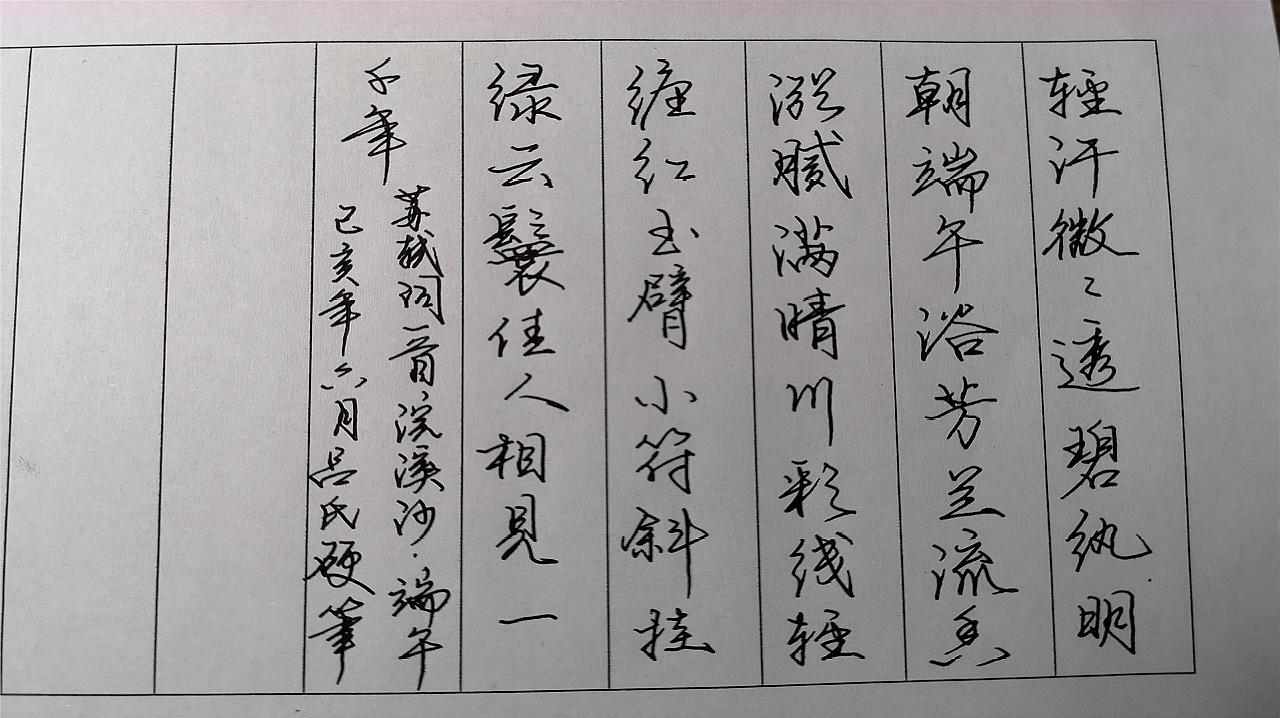 轻汗微々透碧纨明
朝端午浴芳兰流香
涨腻满晴川彩线轻
缠红玉臂小符斜挂
绿云鬟佳人相见一
千年
苏轼词一首浣溪沙·端午
己亥年六月吕氏硬笔